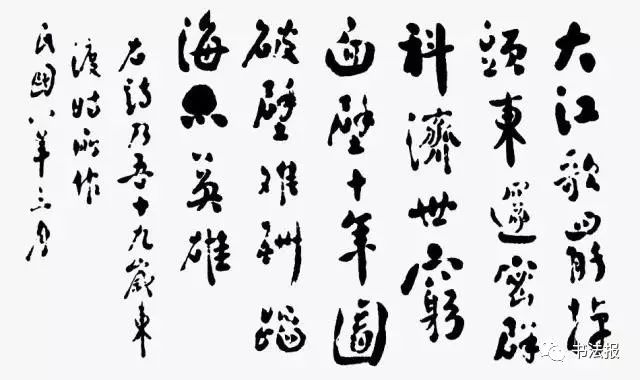 大江歌罷掉
頭東邃密群
科濟世窮
面壁十年圖
破壁難酬蹈
海亦英雄
右詩乃吾十九歲東
渡時所作
民國八年三月
书法报